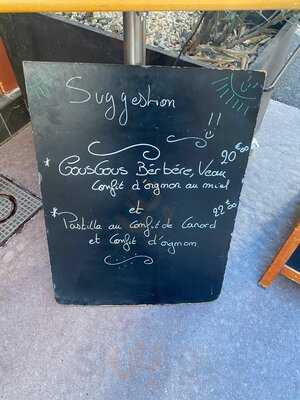 Suggestion !!
* CousCous Bérbére, Veau 20€00
Confit d'oignon au miel
et
* Pastilla au Confit de Canard 22€00
et Confit d'oignon